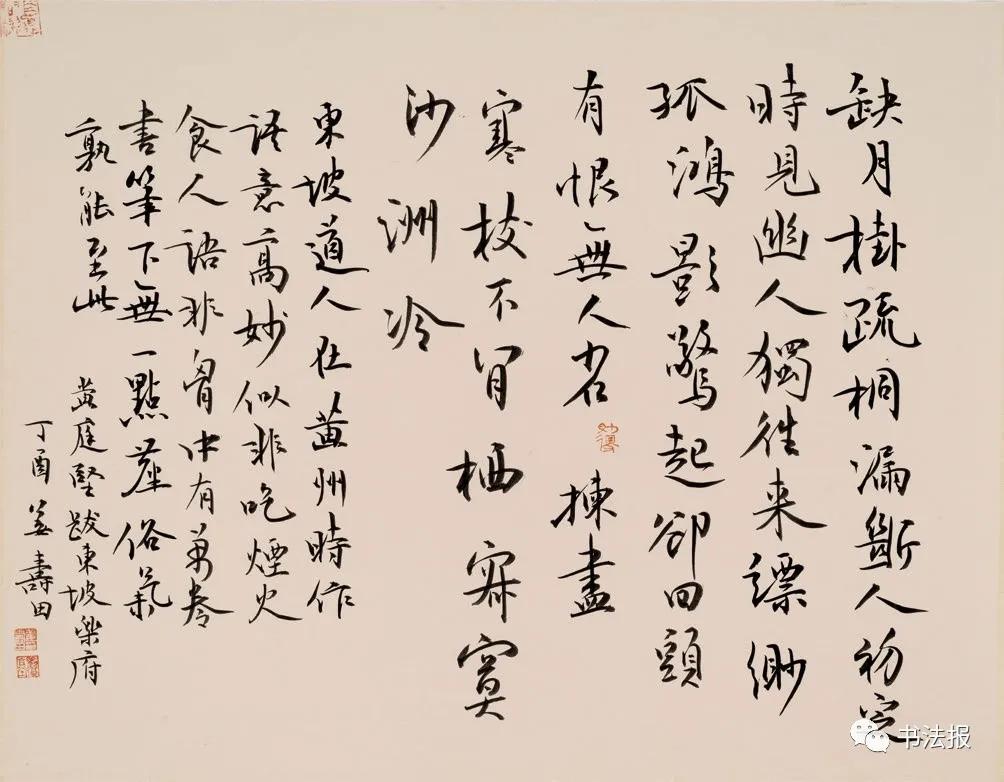 缺月掛疏桐漏斷人初定
時見幽人獨往来縹緲
孤鴻影驚起卻回頭
有恨無人省揀盡
寒枝不肯栖寂寞
沙洲冷
東坡道人在黄州時作
語意高妙似非吃煙火
食人語非胷中有萬卷
書筆下無一點塵俗氣
孰能至此
黄庭堅跋東坡樂府
丁酉姜壽田
书法报